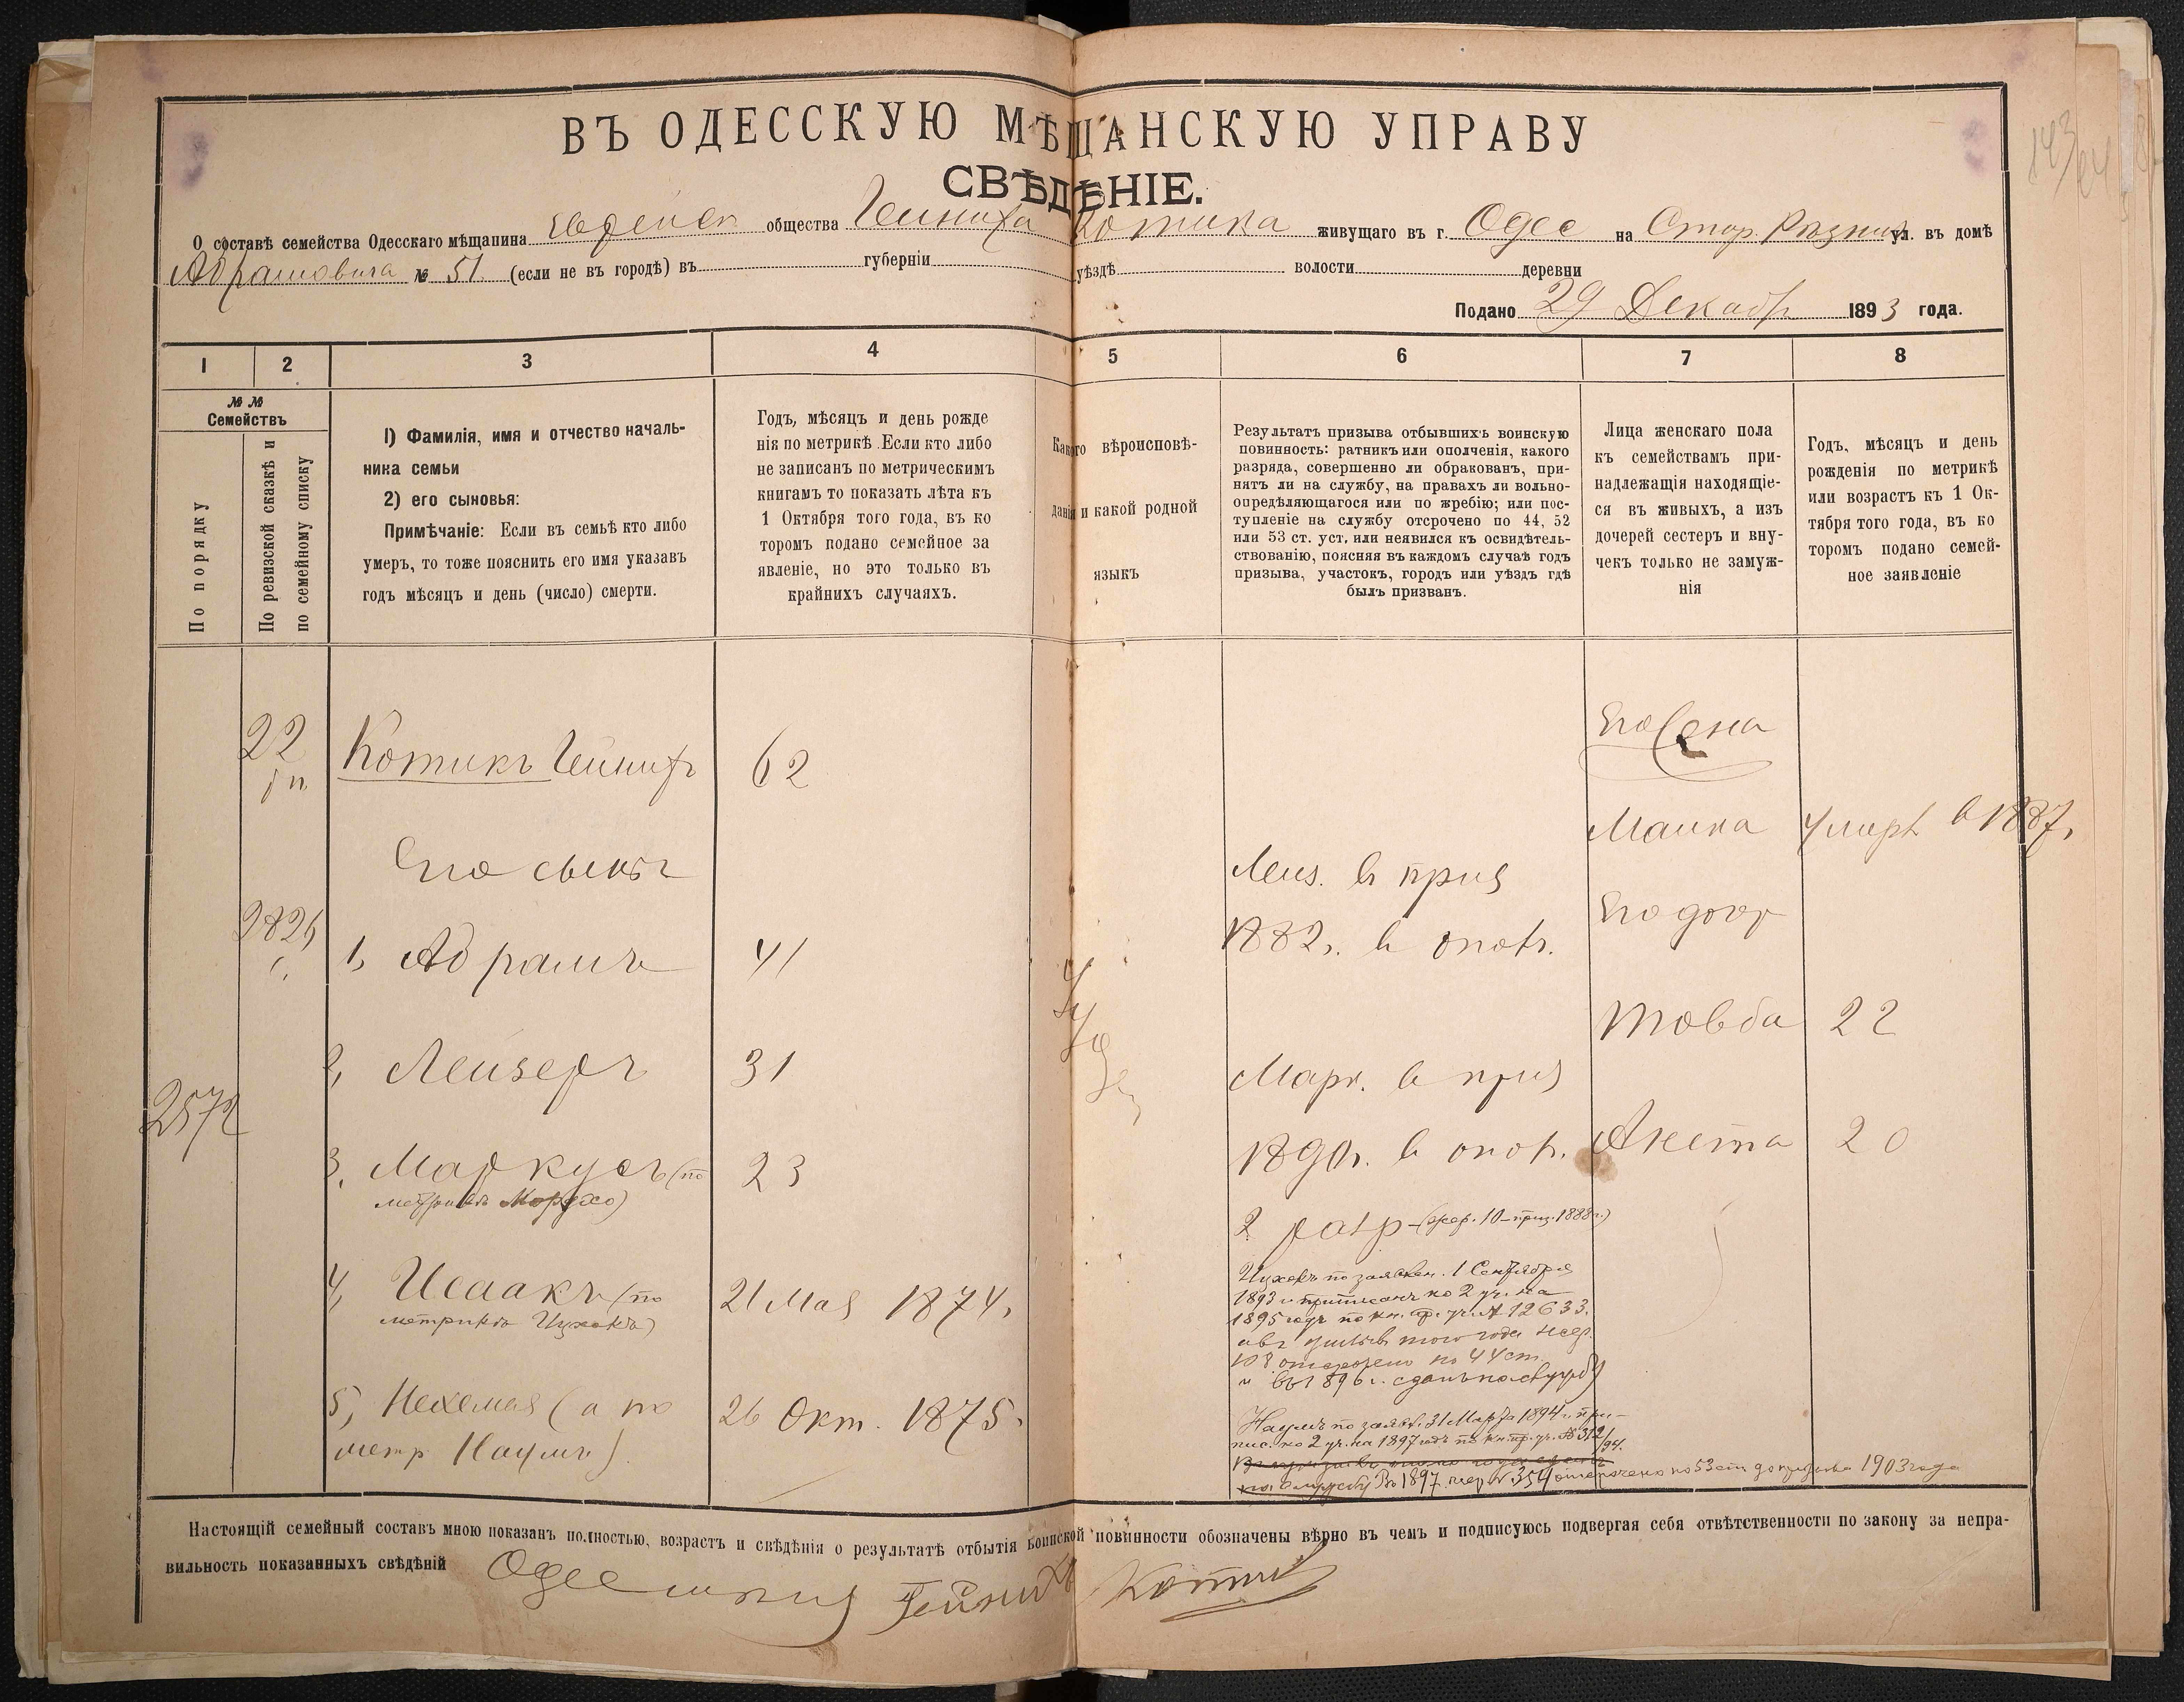 ВЪ ОДЕССКУЮ МѢЩАНСКУЮ УПРАВУ
СВѢДѢНІЕ.
О составѣ семейства Одесскаго мѣщанина Еврейск общества Гейниха Котика живущаго въ г. Одес на Стар. Рѣзнич ул. въ домѣ
Абрамовича № 51. (если не въ городѣ) въ губерніи уѣздѣ волости деревни
Подано 29 Декабр 1893 года.
1 2 3 4 5 6 7 8
№ №
Семействъ
По порядку
По ревизской сказкѣ и
по семейному списку
1) Фамилія, имя и отчество началь-
ника семьи
2) его сыновья:
Примѣчаніе: Если въ семьѣ кто либо
умеръ, то тоже пояснить его имя указавъ
годъ мѣсяцъ и день (число) смерти.
Годъ, мѣсяцъ и день рожде
нія по метрикѣ. Если кто либо
не записанъ по метрическимъ
книгамъ то показать лѣта къ
1 Октября того года, въ ко
торомъ подано семейное за
явленіе, но это только въ
крайнихъ случаяхъ.
Какого вѣроисповѣ-
данія и какой родной
языкъ
Результатъ призыва отбывшихъ воинскую
повинность: ратникъ или ополченія, какого
разряда, совершенно ли обракованъ, при-
нятъ ли на службу, на правахъ ли вольно-
опредѣляющагося или по жребію; или пос-
тупленіе на службу отсрочено по 44, 52
или 53 ст. уст. или неявился къ освидѣтель-
ствованію, поясняя въ каждомъ случаѣ годъ
призыва, участокъ, городъ или уѣздъ гдѣ
былъ призванъ.
Лица женскаго пола
къ семействамъ при-
надлежащія находящіе-
ся въ живыхъ, а изъ
дочерей сестеръ и вну-
чекъ только не замуж-
нія
Годъ, мѣсяцъ и день
рожденія по метрикѣ
или возрастъ къ 1 Ок-
тября того года, въ ко
торомъ подано семей-
ное заявленіе
22
Котикъ Гейнихъ 62
Его жена
Маика умерл в 1887г
Его сыны
Лейз. в приз
1882г. в опол.
Его дочер
1, Абрамъ 41
Товба 22
2, Лейзеръ 31
Марк. в приз
2572
3, Маркусъ (по
метрикѣ Мордхо) 23
1890г. в опол.
Анета 20
2 разр - (жер. 10 - приз. 1888г.)
4, Исаакъ (по
метрикѣ Ицхокъ) 21 Мая 1874г
Ицхокъ по заявлен. 1 Сентября
1893 г. приписанъ ко 2 уч. на
1895 годъ по кн. пр. уч. № 12633.
отсрочено по 44 ст.
и въ 1896 г. сданъ на службу)
5, Нехемия (а по
метр Наумъ). 26 Окт. 1875г
Наумъ по заявл. 31 Марта 1894 г. при-
пис. ко 2 уч. на 1897 годъ по кн. пр. уч. № 312/94.
на службу Въ 1897 жер № 354 отсрочено по 53 ст до призыва 1903 года
Настоящій семейный составъ мною показанъ полностью, возрастъ и свѣдѣнія о результатѣ отбытія воинской повинности обозначены вѣрно въ чемъ и подписуюсь подвергая себя отвѣтственности по закону за непра-
вильность показанныхъ свѣдѣній Гейнихъ Котик